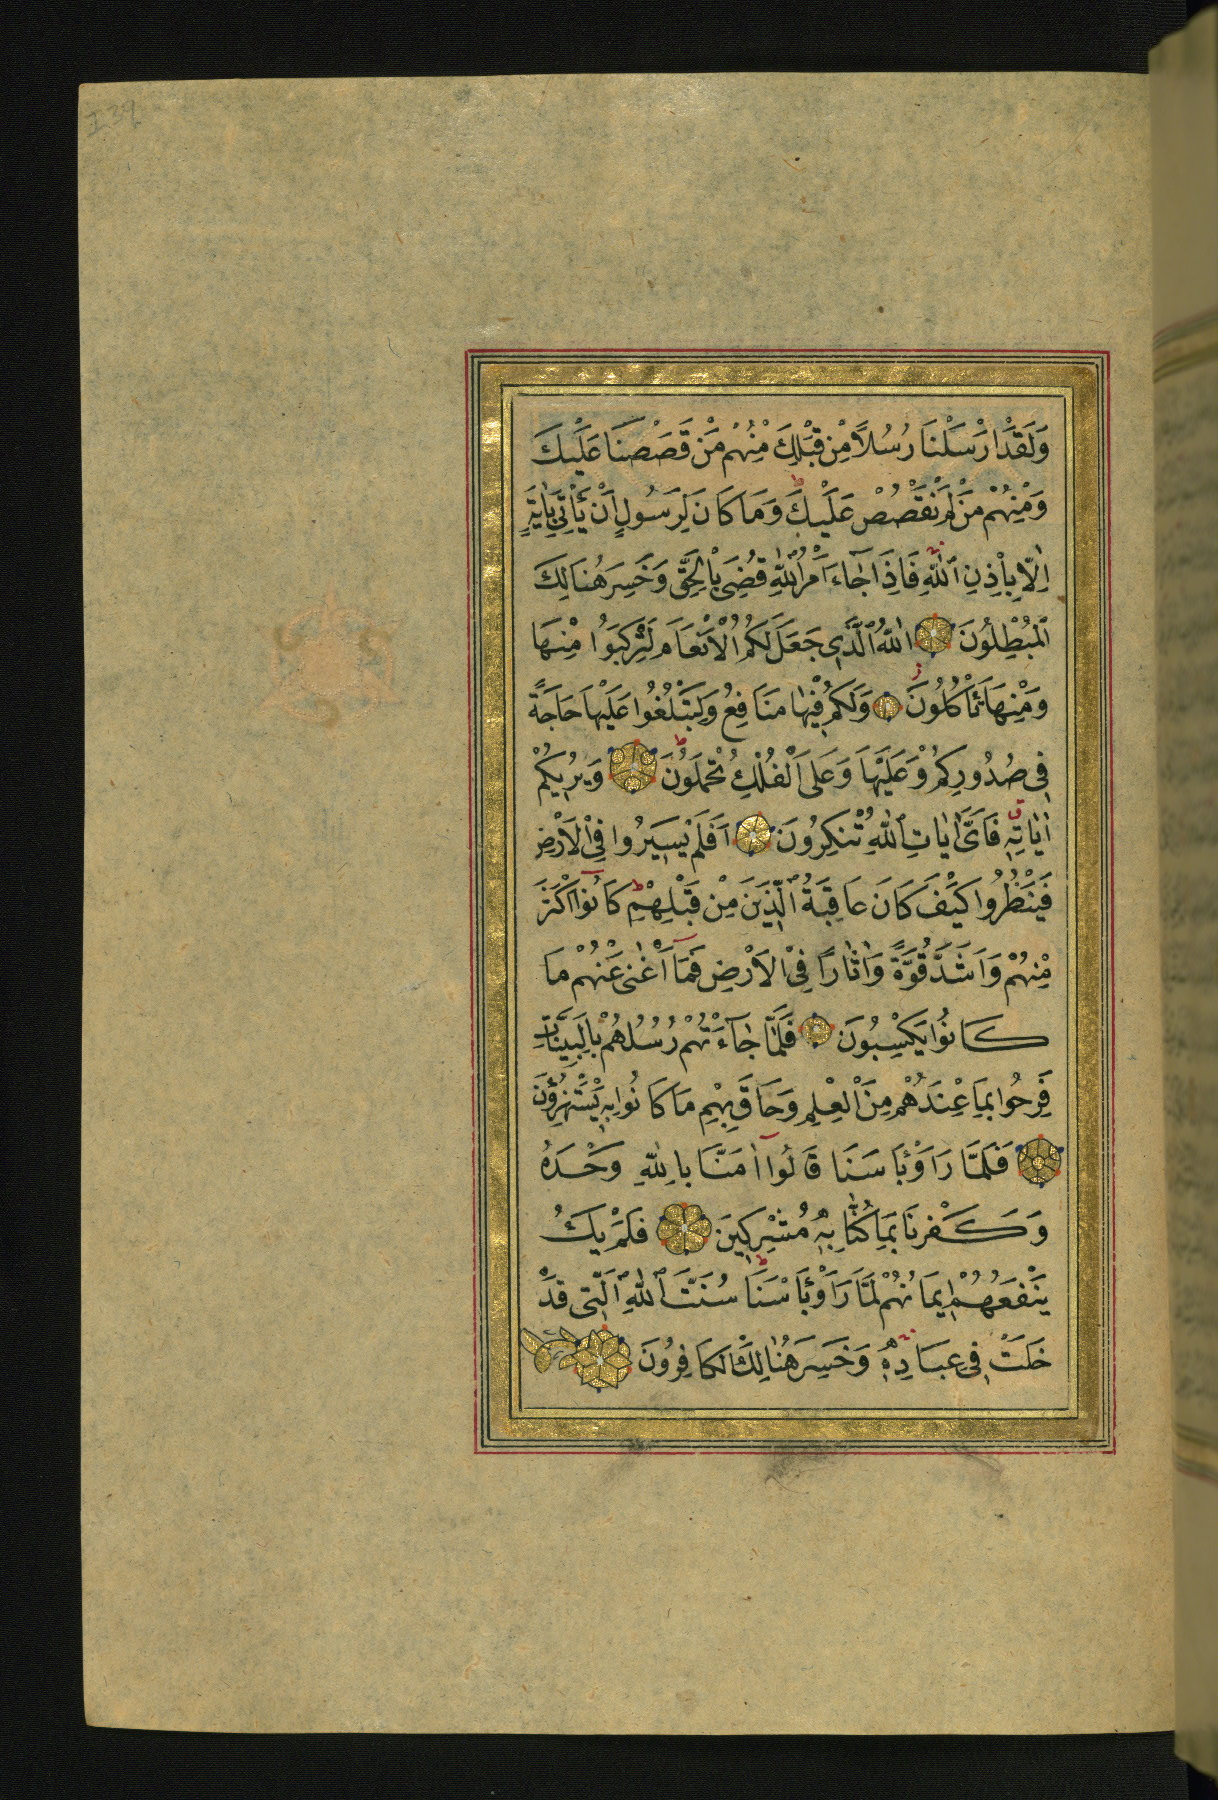 وَلَقَدْ اَرْسَلْنَا رُسُلًا مِنْ قَبْلِكَ مِنْهُمْ مَنْ قَصَصْنَا عَلَيْكَ
وَمِنْهُمْ مَنْ لَمْ نَقْصُصْ عَلَيْكَ ط وَمَا كَانَ لِرَسُولٍ اَنْ يَأْتِيَ بِاٰيَةٍ
اِلَّا بِاِذْنِ اللّٰهِ فَاِذَا جَٓاءَ اَمْرُ اللّٰهِ قُضِيَ بِالْحَقِّ وَخَسِرَ هُنَالِكَ
الْمُبْطِلُونَ اَللّٰهُ الَّذِي جَعَلَ لَكُمُ الْاَنْعَامَ لِتَرْكَبُوا مِنْهَا
وَمِنْهَا تَأْكُلُونَ ز وَلَكُمْ فِيهَا مَنَافِعُ وَلِتَبْلُغُوا عَلَيْهَا حَاجَةً
فِي صُدُورِكُمْ وَعَلَيْهَا وَعَلَى الْفُلْكِ تُحْمَلُونَ ط وَيُرِيكُمْ
اٰيَاتِهٖ ق فَاَيَّ اٰيَاتِ اللّٰهِ تُنْكِرُونَ اَفَلَمْ يَسِيرُوا فِي الْاَرْضِ
فَيَنْظُرُوا كَيْفَ كَانَ عَاقِبَةُ الَّذِينَ مِنْ قَبْلِهِمْ ط كَانُٓوا اَكْثَرَ
مِنْهُمْ وَاَشَدَّ قُوَّةً وَاٰثَارًا فِي الْاَرْضِ فَمَٓا اَغْنٰى عَنْهُمْ مَا
كَانُوا يَكْسِبُونَ فَلَمَّا جَٓاءَتْهُمْ رُسُلُهُمْ بِالْبَيِّنَاتِ
فَرِحُوا بِمَا عِنْدَهُمْ مِنَ الْعِلْمِ وَحَاقَ بِهِمْ مَا كَانُوا بِهٖ يَسْتَهْزِؤُنَ
فَلَمَّا رَاَوْا بَأْسَنَا قَالُٓوا اٰمَنَّا بِاللّٰهِ وَحْدَهُ
وَكَفَرْنَا بِمَا كُنَّا بِهٖ مُشْرِكِينَ فَلَمْ يَكُ
يَنْفَعُهُمْ اِيمَانُهُمْ لَمَّا رَاَوْا بَأْسَنَا ط سُنَّتَ اللّٰهِ الَّتِي قَدْ
خَلَتْ فِي عِبَادِهٖ وَخَسِرَ هُنَالِكَ الْكَافِرُونَ